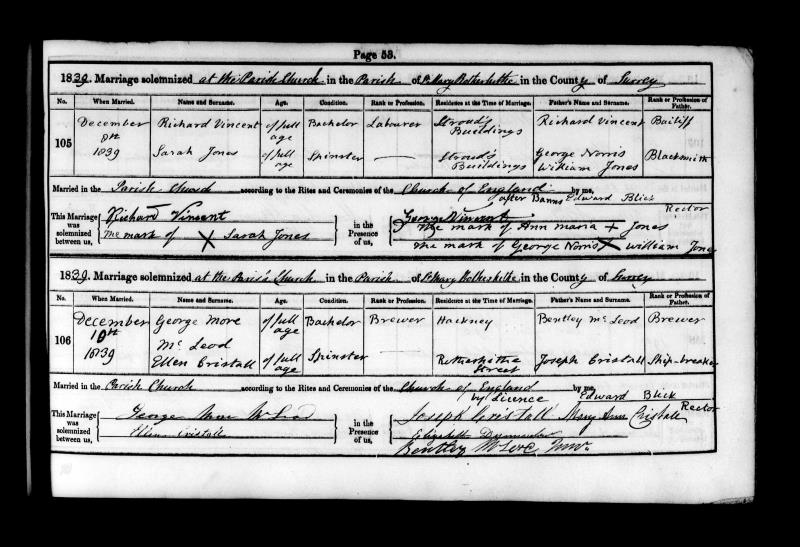 Page 53.
1839. Marriage solemnized at the Parish Church in the Parish of St Mary Rotherhithe in the County of Surrey
No. When Married. Name and Surname. Age. Condition. Rank or Profession. Residence at the Time of Marriage. Father's Name and Surname. Rank or Profession of Father.
105
December 8th 1839
Richard Vincent of full age Bachelor Labourer Stroud's Buildings Richard Vincent Bailiff
Sarah Jones of full age Spinster — Stroud's Buildings George Norris William Jones Blacksmith
Married in the Parish Church according to the Rites and Ceremonies of the Church of England after Banns by me, Edward Blick Rector
This Marriage was solemnized between us,
Richard Vincent
The mark of X Sarah Jones
in the Presence of us,
George
The mark of Ann Maria + Jones
The mark of George Norris X William Jones
1839. Marriage solemnized at the Parish Church in the Parish of St Mary Rotherhithe in the County of Surrey
No. When Married. Name and Surname. Age. Condition. Rank or Profession. Residence at the Time of Marriage. Father's Name and Surname. Rank or Profession of Father.
106
December 10th 1839
George More McLeod of full age Bachelor Brewer Hackney Bentley McLeod Brewer
Ellen Cristall of full age Spinster Rotherhithe Street Joseph Cristall Ship-breaker
Married in the Parish Church according to the Rites and Ceremonies of the Church of England by Licence by me, Edward Blick Rector
This Marriage was solemnized between us,
George More McLeod
Ellen Cristall
in the Presence of us,
Joseph Cristall Mary Ann Cristall
Elizabeth
Bentley McLeod